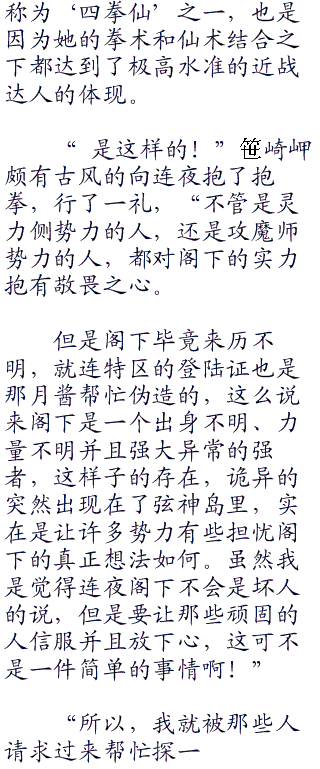 称为‘四拳仙’之一，也是
因为她的拳术和仙术结合之
下都达到了极高水准的近战
达人的体现。
“ 是这样的！”笹崎岬
颇有古风的向连夜抱了抱
拳，行了一礼，“不管是灵
力侧势力的人，还是攻魔师
势力的人，都对阁下的实力
抱有敬畏之心。
但是阁下毕竟来历不
明，就连特区的登陆证也是
那月酱帮忙伪造的，这么说
来阁下是一个出身不明、力
量不明并且强大异常的强
者，这样子的存在，诡异的
突然出现在了弦神岛里，实
在是让许多势力有些担忧阁
下的真正想法如何。虽然我
是觉得连夜阁下不会是坏人
的说，但是要让那些顽固的
人信服并且放下心，这可不
是一件简单的事情啊！”
“所以，我就被那些人
请求过来帮忙探一